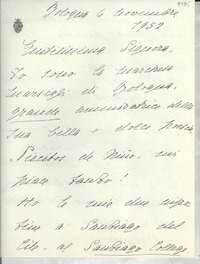 Bologna 6 Novembre
1952
Gentilissima Signora,
Io sono la marchesa
Marsigli di Bologna,
grande ammiratrice della
sua bella e dolce poesia
"Piececitos de Niño" mi
piace tanto!
Ho le mie due nipo-
tine a Santiago del
Cile, al Santiago College